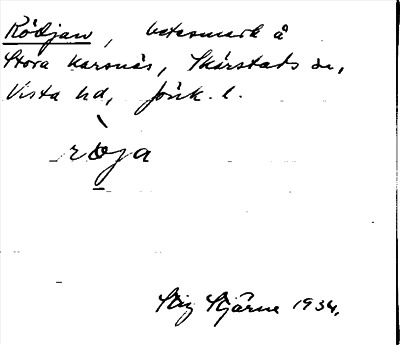 Rödjan, betesmark å
Stora Karsnäs, Skärstads sn,
Vista hd, Jönk. l.
ròja
Stig Stjärne 1934.